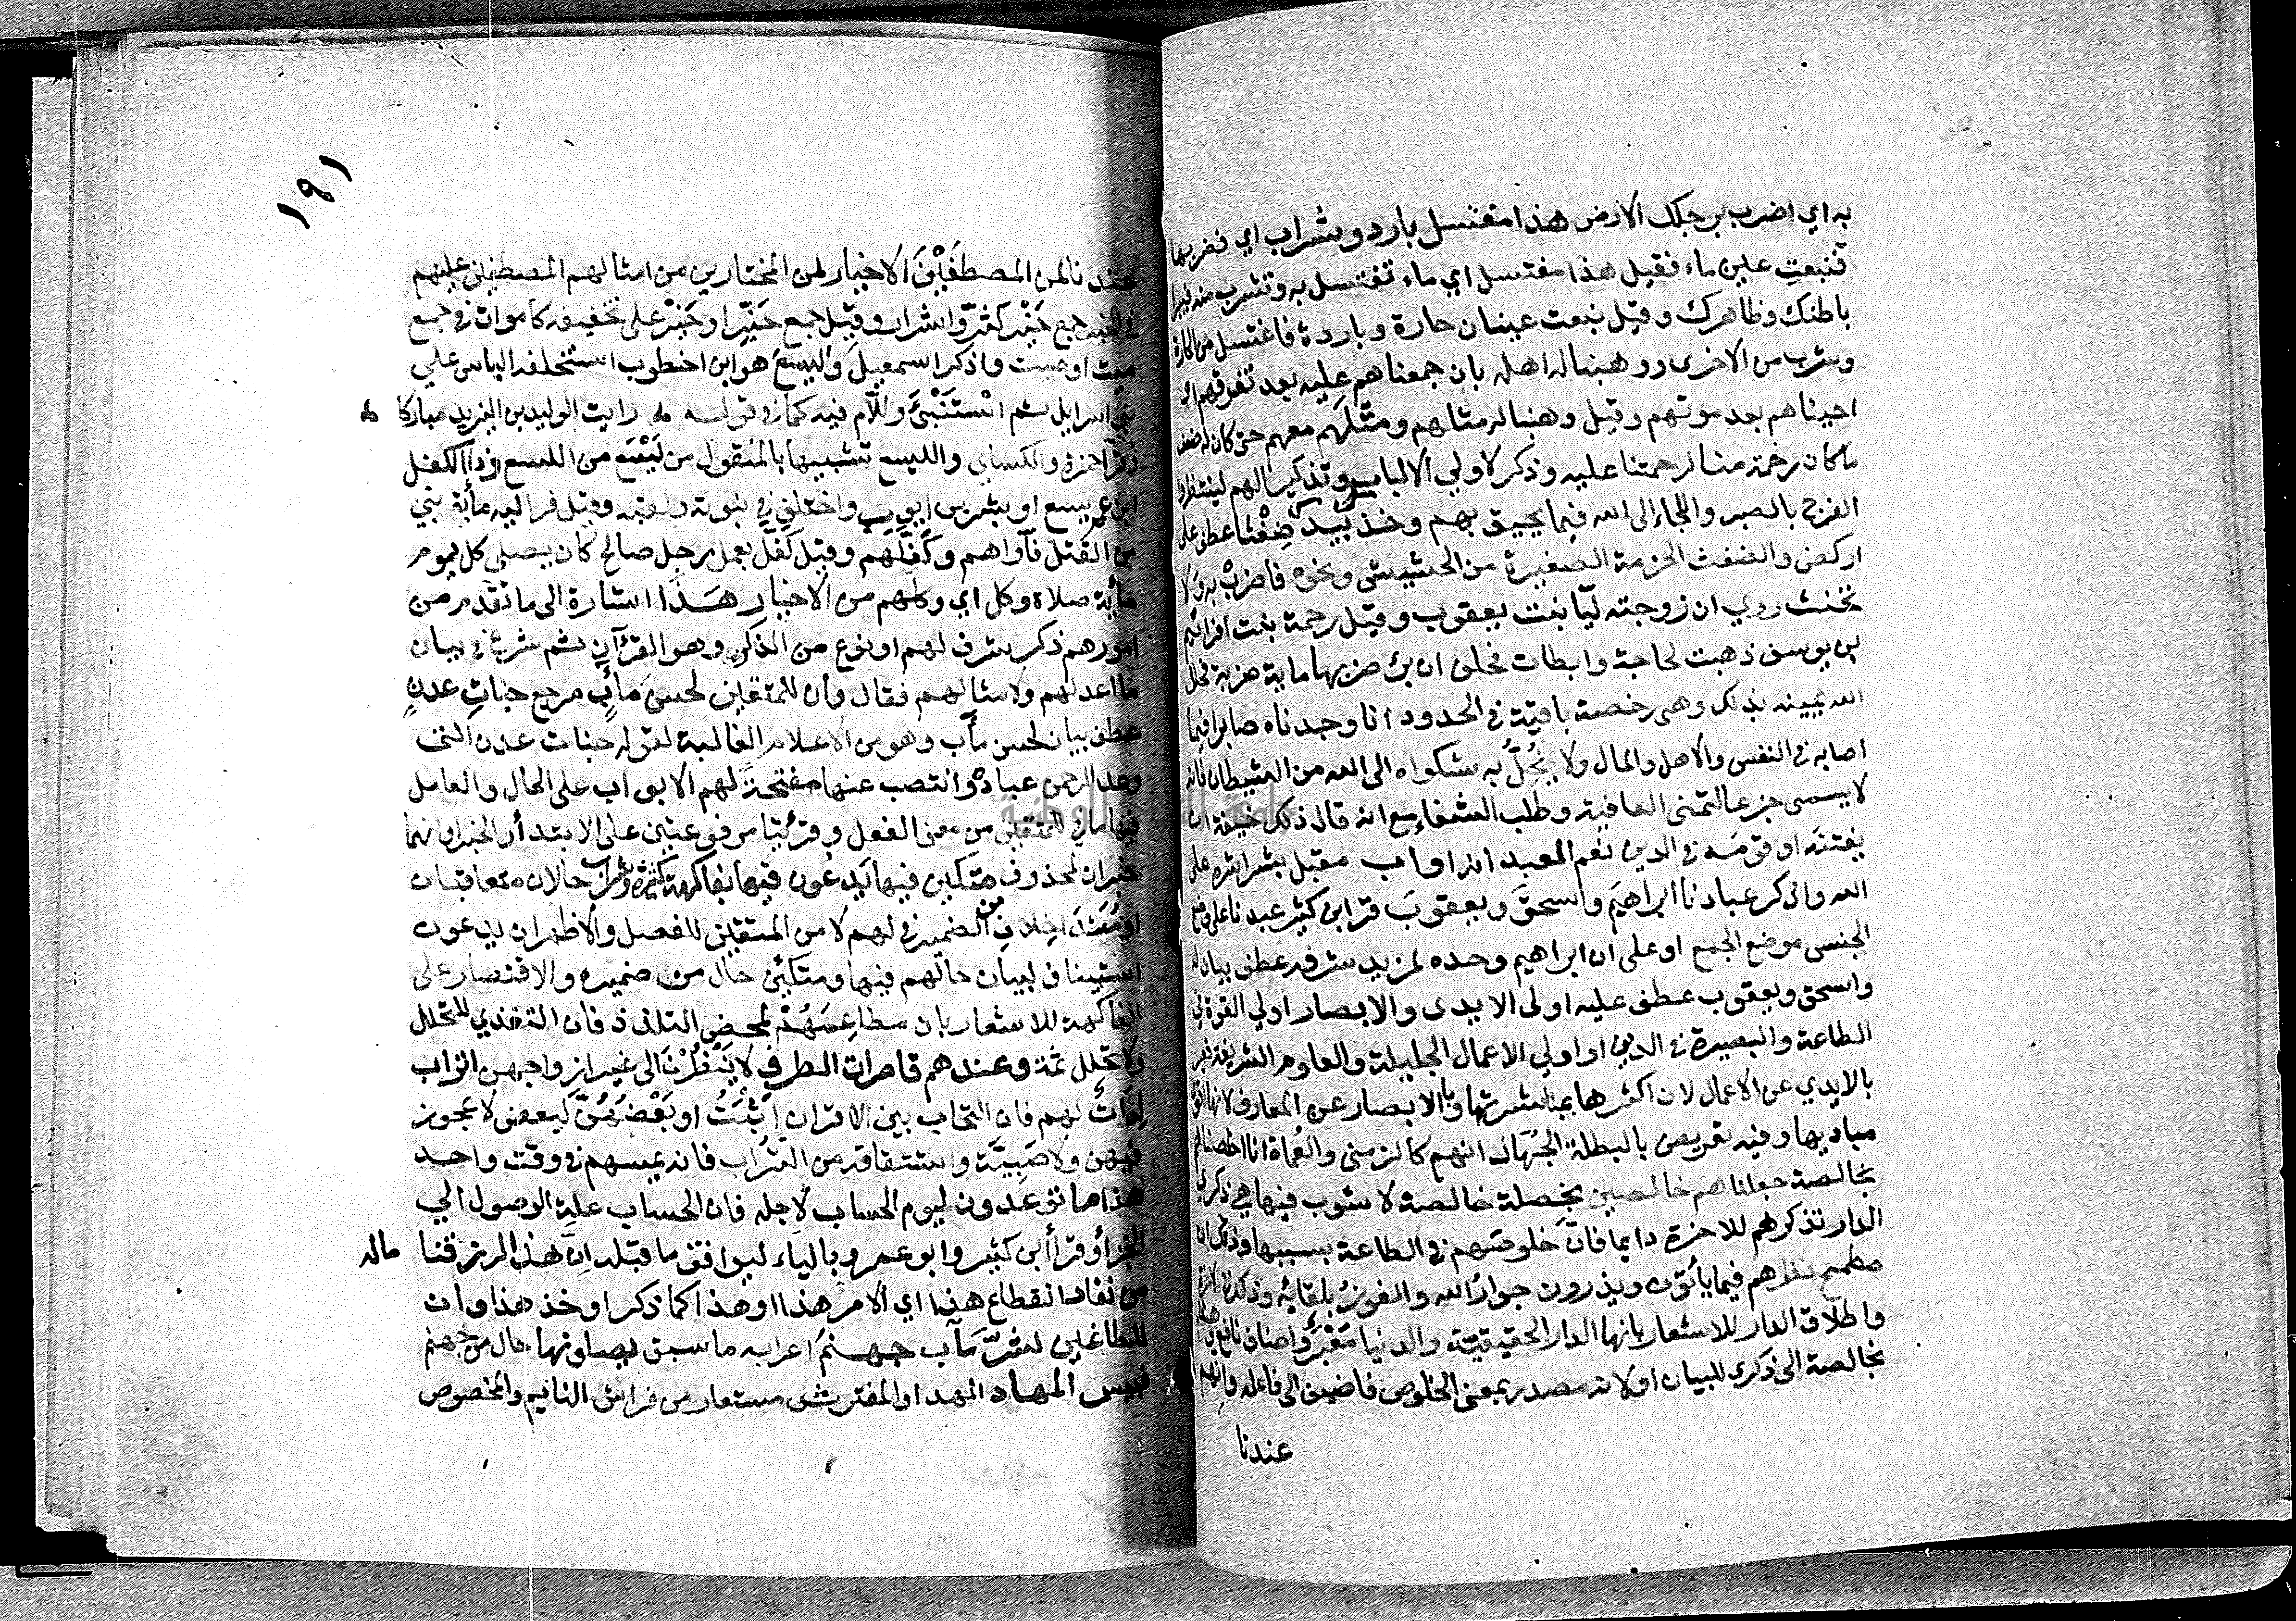 به اي اضرب برجلك الارض هذا مغتسل بارد وشراب اي فضربها
فنبعت عين ماء فقيل هذا مغتسل اي ماء تغتسل به وتشرب منه فيبرا
باطنك وظاهرك وقيل نبعت عينان حارة وباردة فاغتسل من الحارة
وشرب من الاخرى ووهبنا له اهله بان جمعناهم عليه بعد تفرقهم او
احييناهم بعد موتهم وقيل وهبنا له مثلهم ومثلهم معهم حتى كان له ضعف
ما كان رحمة منا لرحمتنا عليه وذكر لاولي الالباب وتذكيرا لهم لينتظروا
الفرج بالصبر واللجاء الى الله فيما يحيق بهم وخذ بيدك ضغثا عطف على
اركض والضغث الحزمة الصغيرة من الحشيش ونحوه فاضرب به ولا
تحنث روي ان زوجته ليا بنت يعقوب وقيل رحمة بنت افرائيم
بن يوسف ذهبت لحاجة وابطات فحلف ان برئ ضربها ماية ضربة فحلل
الله يمينه بذلك وهى رخصة باقية في الحدود انا وجدناه صابرا فيما
اصابه في النفس والاهل والمال ولا يخل به شكواه الى الله من الشيطان فانه
لا يسمى جزعا كتمنى العافية وطلب الشفاء مع انه قال ذلك خيفة ان
يفتنه او قومه في الدين نعم العبد انه اواب مقبل بشراشره على
الله واذكر عبادنا ابراهيم واسحق ويعقوب قرا ابن كثير عبدنا على وضع
الجنس موضع الجمع او على ان ابراهيم وحده لمزيد شرفه عطف بيان له
واسحق ويعقوب عطف عليه اولى الايدى والابصار اولي القوة في
الطاعة والبصيرة في الدين او اولي الاعمال الجليلة والعلوم الشريفة فعبر
بالايدي عن الاعمال لان اكثرها بمباشرتها وبالابصار عن المعارف لانها اقوى
مباديها وفيه تعريض بالبطلة الجهال انهم كالزمنى والعماة انا اخلصناهم
بخالصة جعلناهم خالصين بخصلة خالصة لا شوب فيها هي ذكرى
الدار تذكرهم للاخرة دايما فان خلوصهم في الطاعة بسببها وذلك ان
مطمح نظرهم فيما يأتون ويذرون جوار الله والفوز بلقائه وذلك في الاخرة
واطلاق الدار للاشعار بانها الدار الحقيقية والدنيا معبر واضاف نافع وهشام
بخالصة الى ذكرى للبيان او لانه مصدر بمعنى الخلوص فاضيف الى فاعله وانهم
عندنا
١٩١
عندنا لمن المصطفين الاخيار لمن المختارين من امثالهم المصطفين عليهم
في الخير جمع خير كشر واشرار وقيل جمع خير او خير على تخفيفه كاموات في جمع
ميت او ميت واذكر اسمعيل واليسع هو ابن اخطوب استخلفه الياس علي
بني اسرايل ثم استنبئ واللام فيه كما في قوله رايت الوليد بن اليزيد مباركا
وقرا حمزة والكساي والليسع تشبيها بالمنقول من ليسع من اللسع وذا الكفل
ابن عم يسع او بشر بن ايوب واختلف في نبوته ولقبه وقيل فر اليه مأية نبي
من القتل فآواهم وكفلهم وقيل كفل بعمل رجل صالح كان يصلي كل يوم
مأية صلاة وكل اي وكلهم من الاخيار هذا اشارة الى ما تقدم من
امورهم ذكر شرف لهم او نوع من الذكر وهو القرآن ثم شرع في بيان
ما اعد لهم ولامثالهم فقال وان للمتقين لحسن مآب مرجع جنات عدن
عطف بيان لحسن مآب وهو من الاعلام الغالبة لقوله جنات عدن التي
وعد الرحمن عباده وانتصب عنها مفتحة لهم الابواب على الحال والعامل
فيها ما في للمتقين من معنى الفعل وقرئتا مرفوعتين على الابتدأ والخبر او انهما
خبران لمحذوف متكين فيها يدعون فيها بفاكهة كثيرة وشراب حالان متعاقبان
او متداخلان من الضمير في لهم لا من المتقين للفصل والاظهر ان يدعون
استيناف لبيان حالهم فيها ومتكئين حال من ضميره والاقتصار على
الفاكهة للاشعار بان مطاعمهم لمحض التلذذ فان التغذي للتحلل
ولا تحلل ثمة وعندهم قاصرات الطرف لا ينظرن الى غير ازواجهن اتراب
لدات لهم فان التحاب بين الاقران اثبت او بعضهن لبعض لا عجوز
فيهن ولا صبية واشتقاقه من التراب فانه يمسهم في وقت واحد
هذا ما توعدون ليوم الحساب لاجله فان الحساب علة الوصول الي
الجزأ وقرأ ابن كثير وابو عمرو بالياء ليوافق ما قبله ان هذا لرزقنا ماله
من نفاد انقطاع هذا اي الامر هذا او هذا كما ذكر او خذ هذا وان
للطاغين لشر مآب جهنم اعرابه ما سبق يصلونها حال من جهنم
فبيس المهاد المهد او المفترش مستعار من فراش النايم والمخصوص